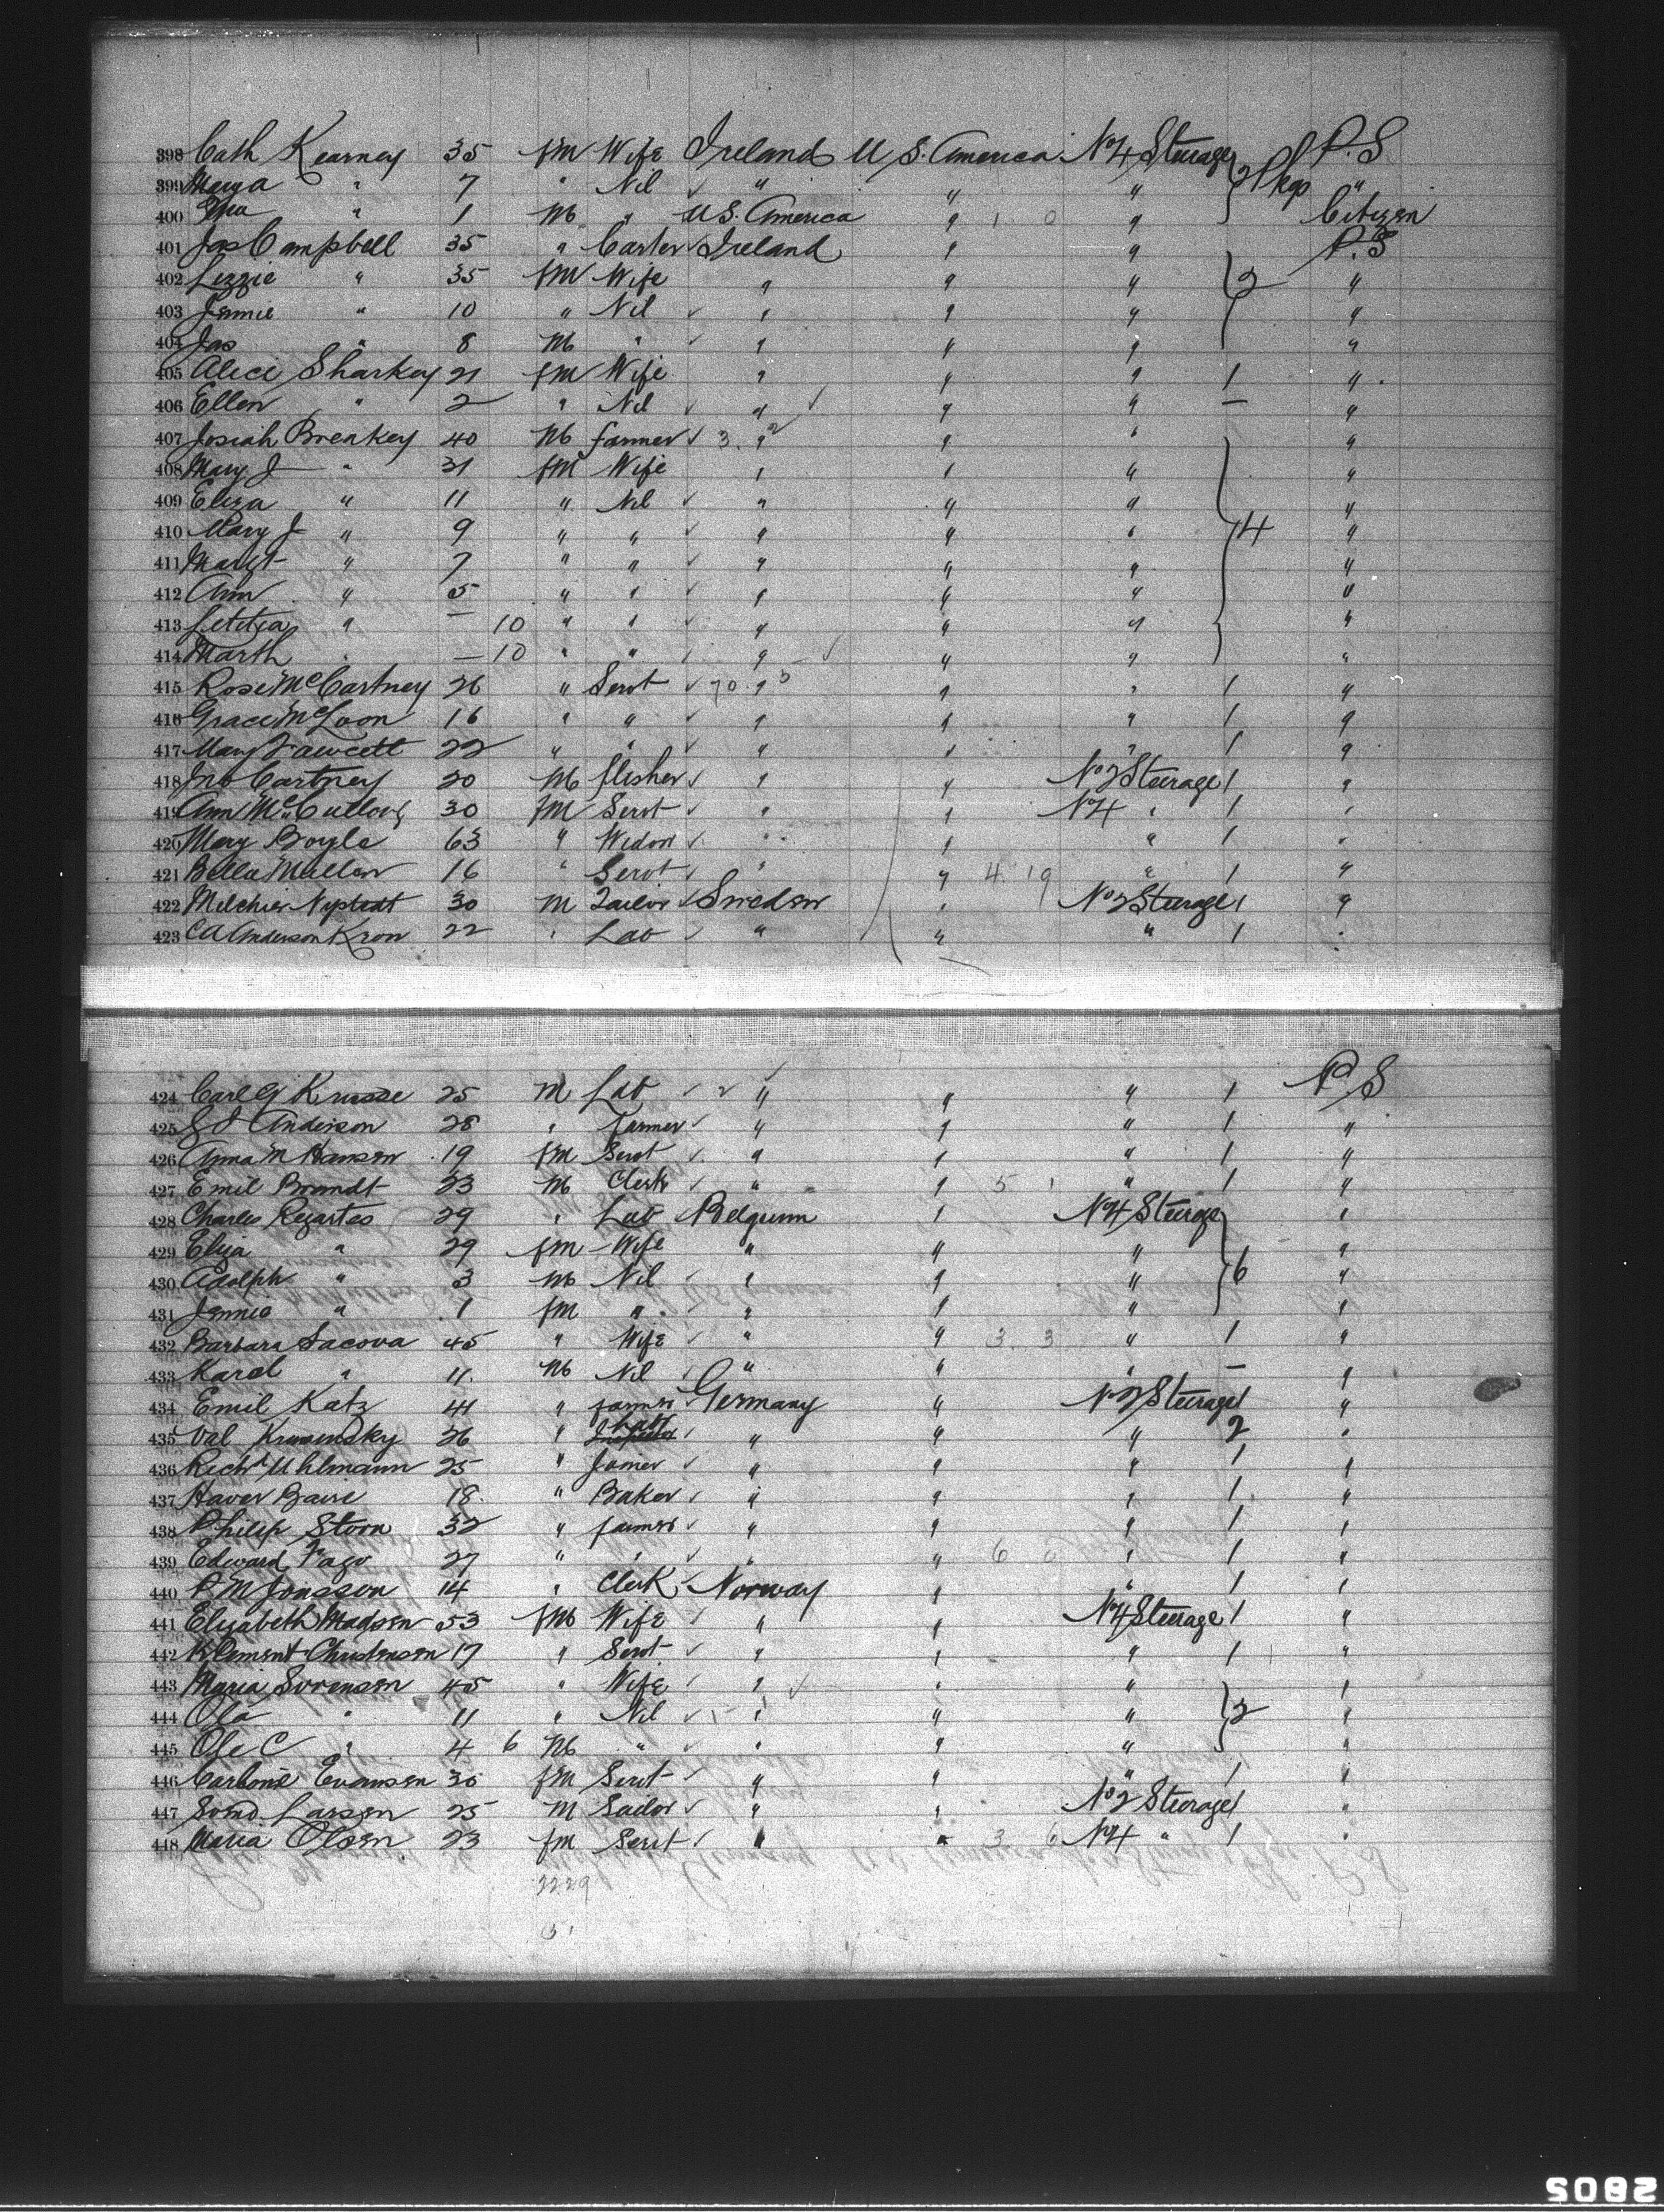 398 Cath Kearney 35 fm Wife Ireland U S. America No 4 Steerage 2 Pkgs P.S
399 Mary A " 7 " Nil " " " "
400 " 1 M " U S. America " 1 0 " Citizen
401 Jas Campbell 35 " Carter Ireland " " P.S
402 Lizzie " 35 fm Wife " " " 2 "
403 Jennie " 10 " Nil " " " "
404 Jas " 8 M " " " " "
405 Alice Sharkey 21 fm Wife " " " 1 "
406 Ellen " 2 " Nil " " " — "
407 Josiah Breakey 40 M farmer 3. 2 " " " "
408 Mary J " 31 fm Wife " " " "
409 Eliza " 11 " Nil " " " "
410 Mary J " 9 " " " " " 4 "
411 Margt " 7 " " " " " "
412 Ann " 5 " " " " " "
413 Letitia " — 10 " " " " " "
414 Marth " — 10 " " " " " "
415 Rose McCartney 26 " Servt 70 5 " " " 1 "
416 Grace McLoon 16 " " " " " 1 "
417 Mary Fawcett 22 " " " " " 1 "
418 Jno Cartney 20 M flesher " " No 2 Steerage 1 "
419 Ann McCullough 30 fm Servt " " No 4 " 1 "
420 Mary Boyle 63 " Widow " " " 1 "
421 Bella Mullen 16 " Servt " " 4. 19 " 1 "
422 Melchior 30 M Tailor Sweden " No 2 Steerage 1 "
423 C A Anderson Kron 22 " Lab " " " 1 "
424 Carl G Krusse 25 M Lab 2 " " " 1 P.S
425 Anderson 28 " farmer " " " 1 "
426 Anna M Hansen 19 fm Servt " " " 1 "
427 Emil Brandt 23 M Clerk " " 5 1 " 1 "
428 Charles 29 " Lab Belgium " No 4 Steerage "
429 Eliza " 29 fm Wife " " " "
430 Adolph " 3 M Nil " " " 6 "
431 Jennie " 1 fm " " " " "
432 Barbara Sacova 45 " Wife " " 3. 3 " 1 "
433 Karel " 11 M Nil " " " — "
434 Emil Katz 41 " farmer Germany " No 2 Steerage 1 "
435 Val 26 " Lab " " " 2 "
436 Richd Uhlmann 25 " Joiner " " " 1 "
437 18 " Baker " " " 1 "
438 Philip 32 " farmer " " " 1 "
439 Edward 27 " " " " 6 0 " 1 "
440 P M Jonsson 14 " Clerk Norway " " 1 "
441 Elizabeth Madsen 53 fm Wife " " No 4 Steerage 1 "
442 Klement Christensen 17 " Servt " " " 1 "
443 Maria Sorensen 45 " Wife " " " "
444 " 11 " Nil " " " 2 "
445 Ole C " 4 6 M " " " " "
446 Evansen 30 fm Servt " " " 1 "
447 Svend Larsen 25 M Sailor " " No 2 Steerage 1 "
448 Maria Olsen 23 fm Servt " " 3. 6 No 4 " 1 "
2229